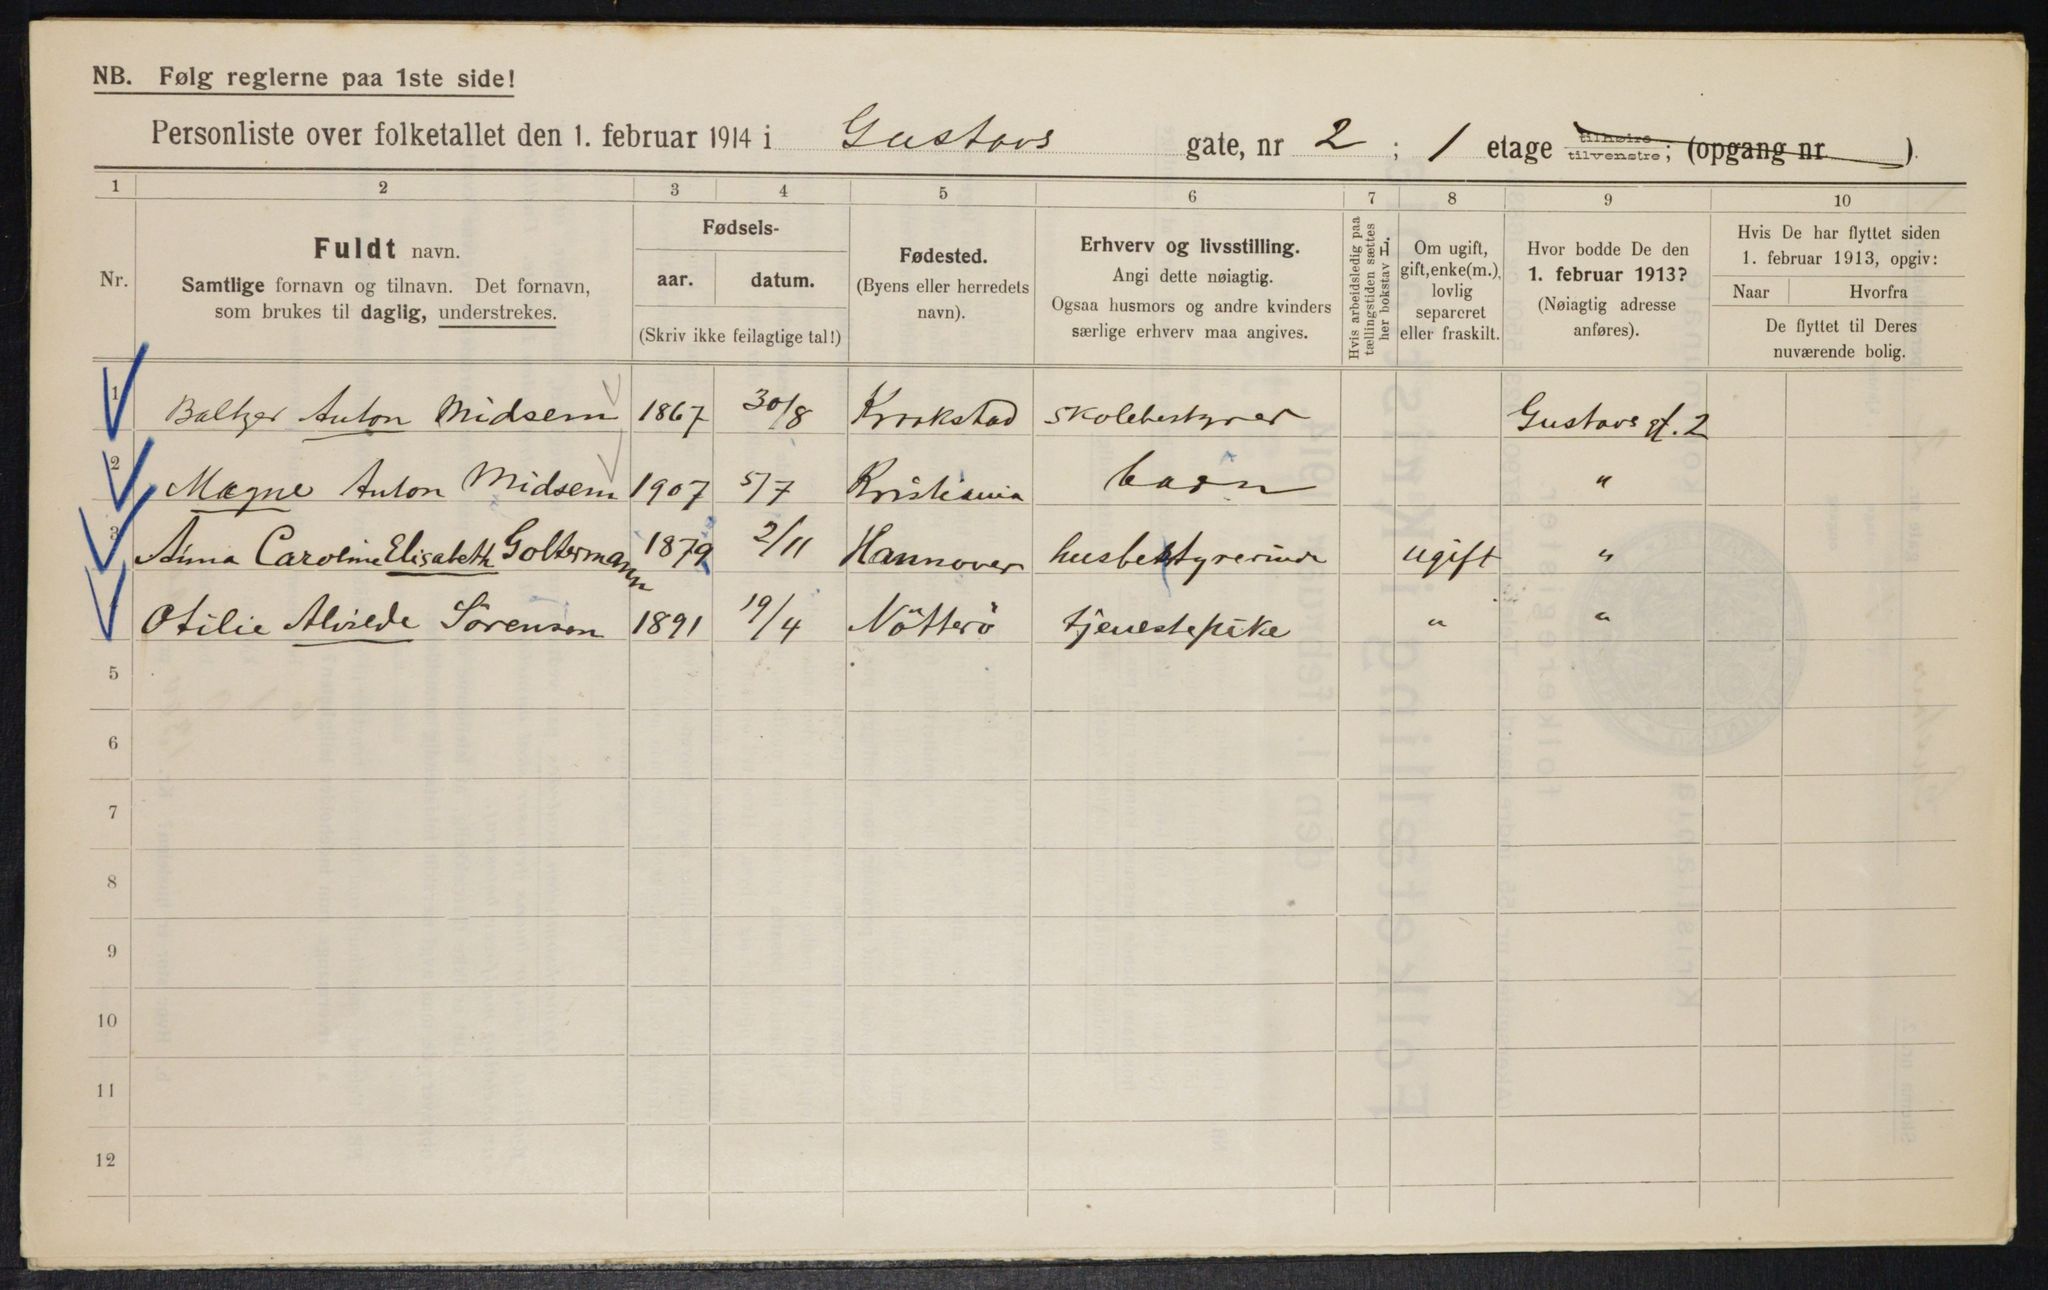 NB. Følg reglerne paa 1ste side!
Personliste over folketallet den 1. februar 1914 i Gustavs gate, nr 2 ; 1 etage tilhøire tilvenstre; (opgang nr )
1 2 3 4 5 6 7 8 9 10
Nr.
Fuldt navn.
Samtlige fornavn og tilnavn. Det fornavn,
som brukes til daglig, understrekes.
Fødsels-
aar. datum.
(Skriv ikke feilagtige tal!)
Fødested.
(Byens eller herredets
navn).
Erhverv og livsstilling.
Angi dette nøiagtig.
Ogsaa husmors og andre kvinders
særlige erhverv maa angives.
Hvis arbeidsledig paa
tællingstiden sættes
her bokstav H.
Om ugift,
gift, enke(m.),
lovlig
separeret
eller fraskilt.
Hvor bodde De den
1. februar 1913?
(Nøiagtig adresse
anføres).
Hvis De har flyttet siden
1. februar 1913, opgiv:
Naar Hvorfra
De flyttet til Deres
nuværende bolig.
1 Baltzer Anton Midsem 1867 30/8 Krokstad skolebestyrer Gustavs gt. 2
2 Magne Anton Midsem 1907 5/7 Kristiania barn "
3 Anna Caroline Elisabeth Goltermann 1879 2/11 Hannover husbestyrerinde ugift "
Otilie Alvilde Sörensen 1891 19/4 Nötterö tjenestepike " "
5
6
7
8
9
10
11
12